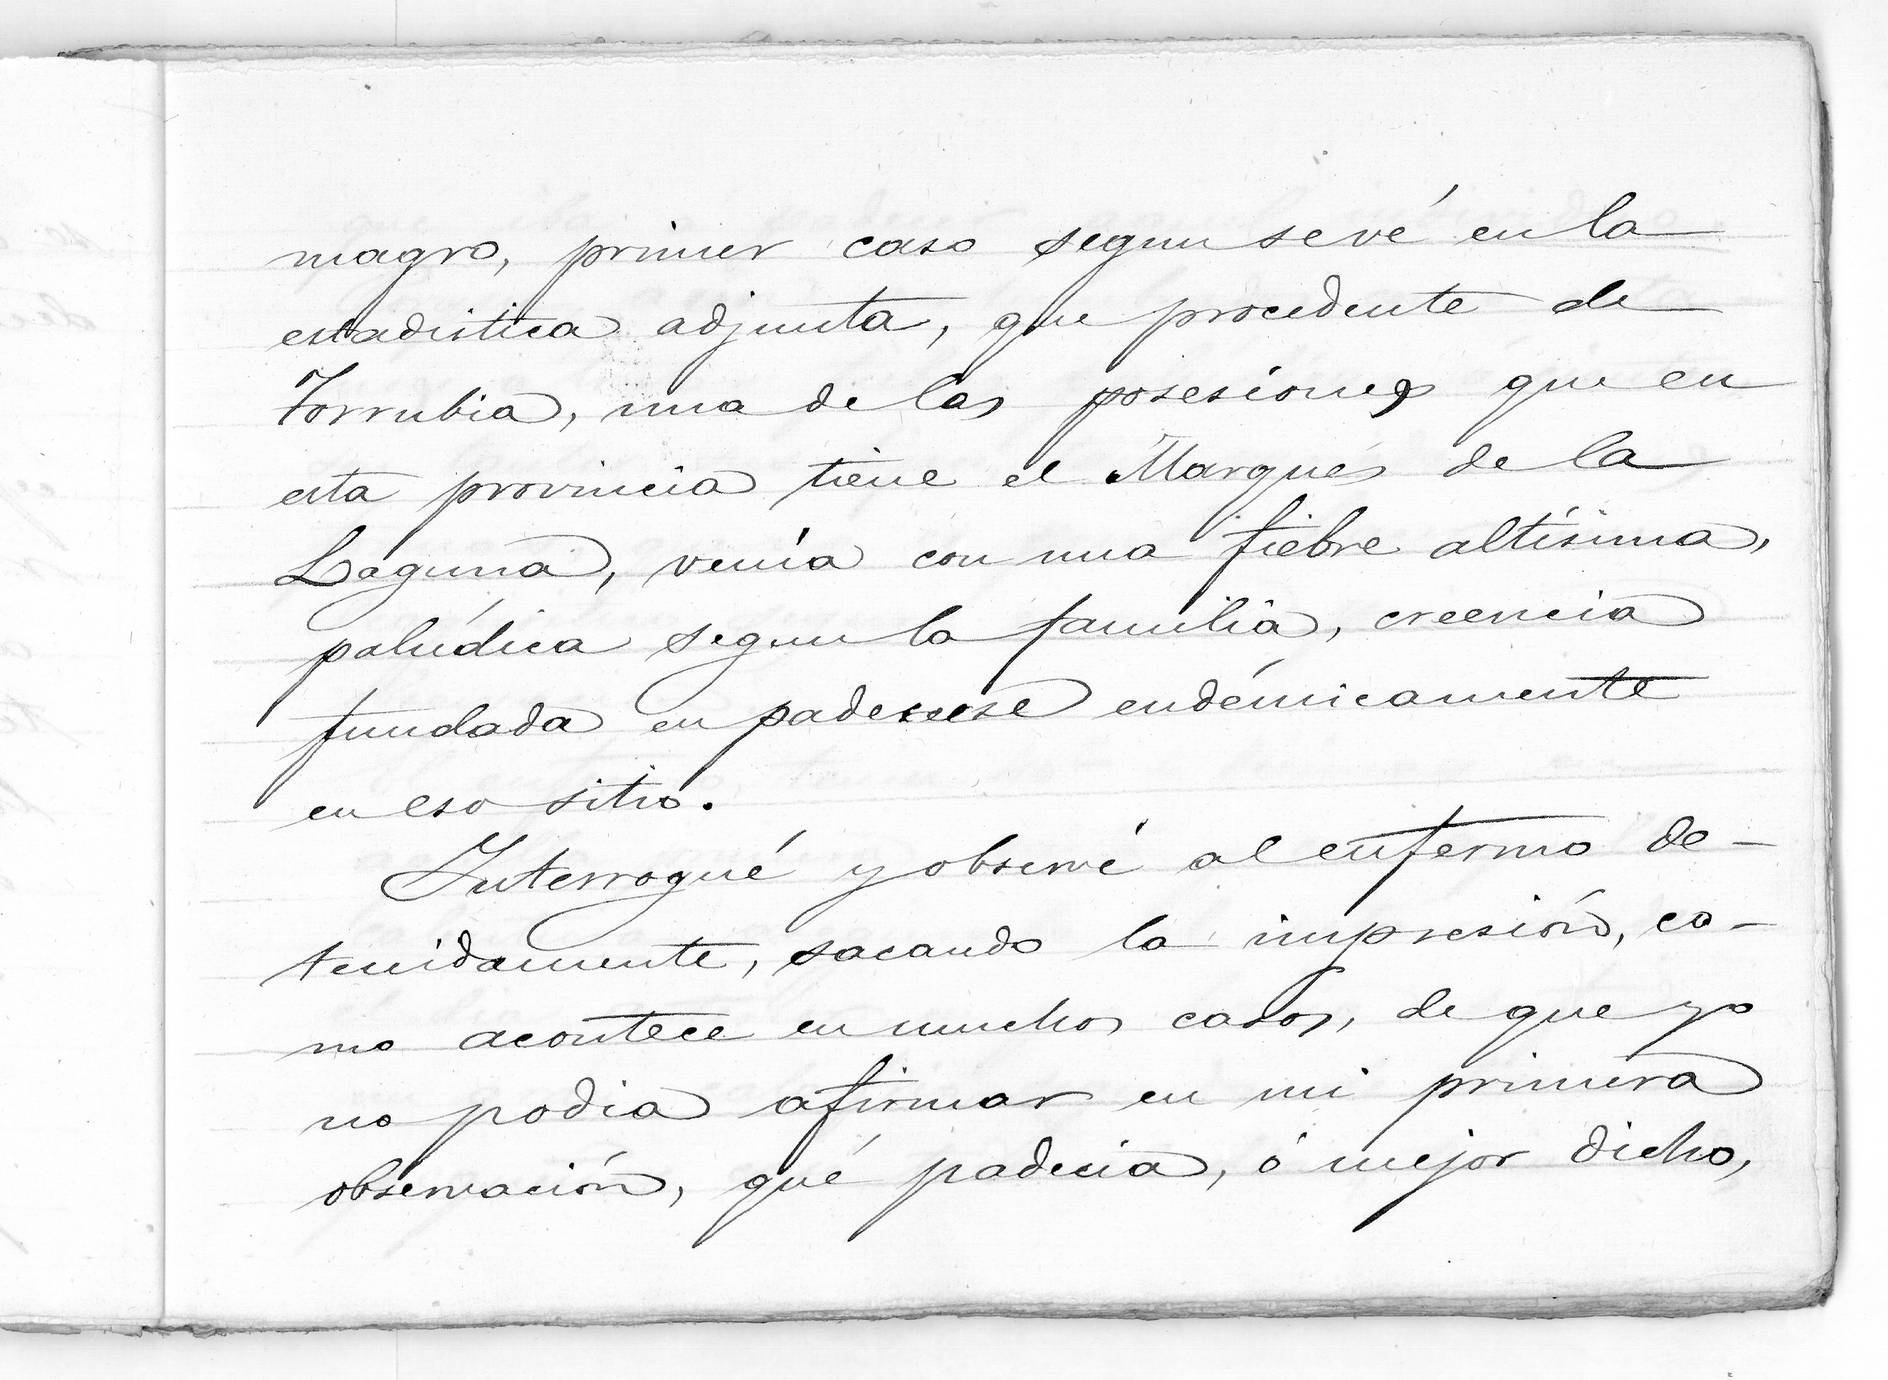 magro, primer caso segun se vé en la
estadistica adjunta, que procedente de
Torrubia, una de las posesiones que en
esta provincia tiene el Marqués de la
Laguna, venía con una fiebre altísima,
palúdica segun la familia, creencia
fundada en padecerse endémicamente
en eso sitio.
Interrogué y observé al enfermo de-
tenidamente, sacando la impresión, co-
mo acontece en muchos casos, de que yo
no podia afirmar en mi primera
observación, qué padecia, ó mejor dicho,